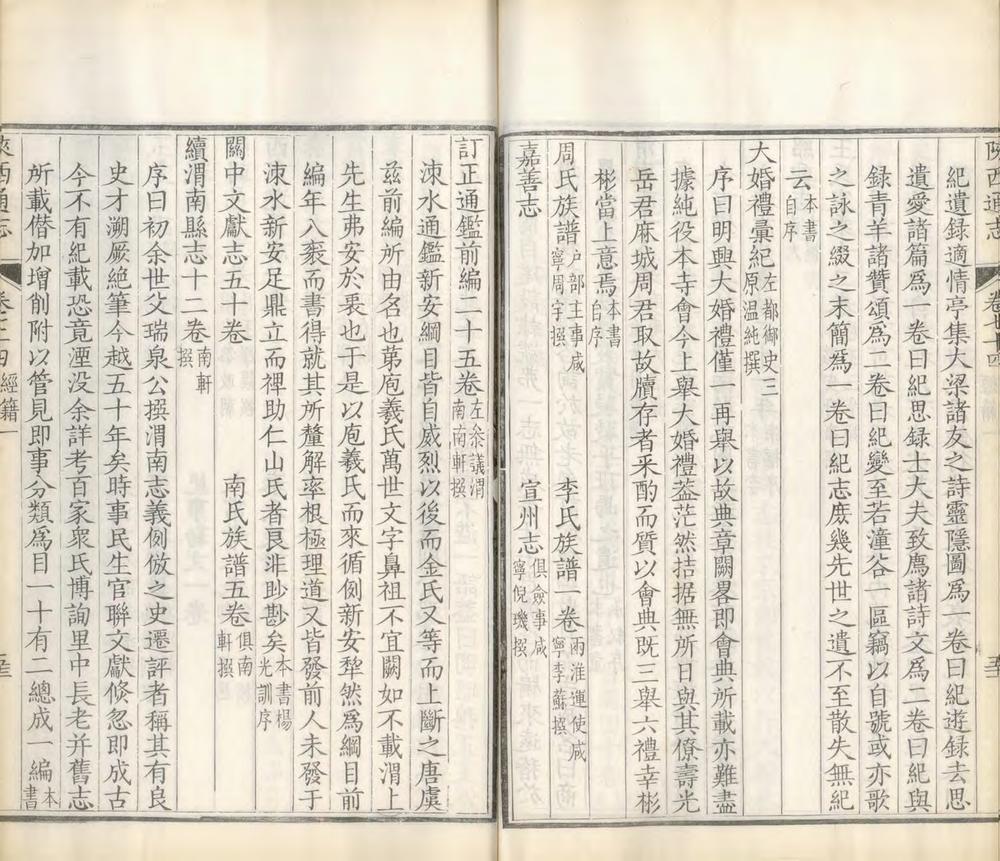 陝西通志 卷七十四 經籍一
紀遺録適情亭集大梁諸友之詩靈隱圖爲一卷曰紀遊録去思
遺愛諸篇爲一卷曰紀思録士大夫致鴈諸詩文爲二卷曰紀與
録青羊諸贊頌爲二卷曰紀變至若潼谷一區竊以自號或亦歌
之詠之綴之末簡爲一卷曰紀志庶幾先世之遺不至散失無紀
云本書自序
大婚禮彙紀左都御史三原温純撰
序曰明興大婚禮僅一再舉以故典章闕畧即會典所載亦難盡
據純役本寺會今上舉大婚禮葢茫然拮据無所日與其僚壽光
岳君麻城周君取故牘存者采酌而質以會典既三舉六禮幸彬
彬當上意焉本書自序
周氏族譜戸部主事咸寧周宇撰 李氏族譜一卷兩淮運使咸寧李蘇撰
嘉善志 宣州志俱僉事咸寧倪璣撰
訂正通鑑前編二十五卷左叅議渭南南軒撰
涑水通鑑新安綱目皆自威烈以後而金氏又等而上斷之唐虞
兹前編所由名也苐庖羲氏萬世文字鼻祖不宜闕如不載渭上
先生弗安於衷也于是以庖羲氏而來循例新安犂然爲綱目前
編年入袠而書得就其所釐解率根極理道又皆發前人未發于
涑水新安足鼎立而裨助仁山氏者良非眇尠矣本書楊光訓序
關中文獻志五十卷 南氏族譜五卷俱南軒撰
續渭南縣志十二卷南軒撰
序曰初余世父瑞泉公撰渭南志義例倣之史遷評者稱其有良
史才溯厥絶筆今越五十年矣時事民生官聯文獻倐忽即成古
今不有紀載恐竟湮没余詳考百家衆氏博詢里中長老并舊志
所載僣加增削附以管見即事分類爲目一十有二總成一編本書
陝西通志 卷七十四 經籍一